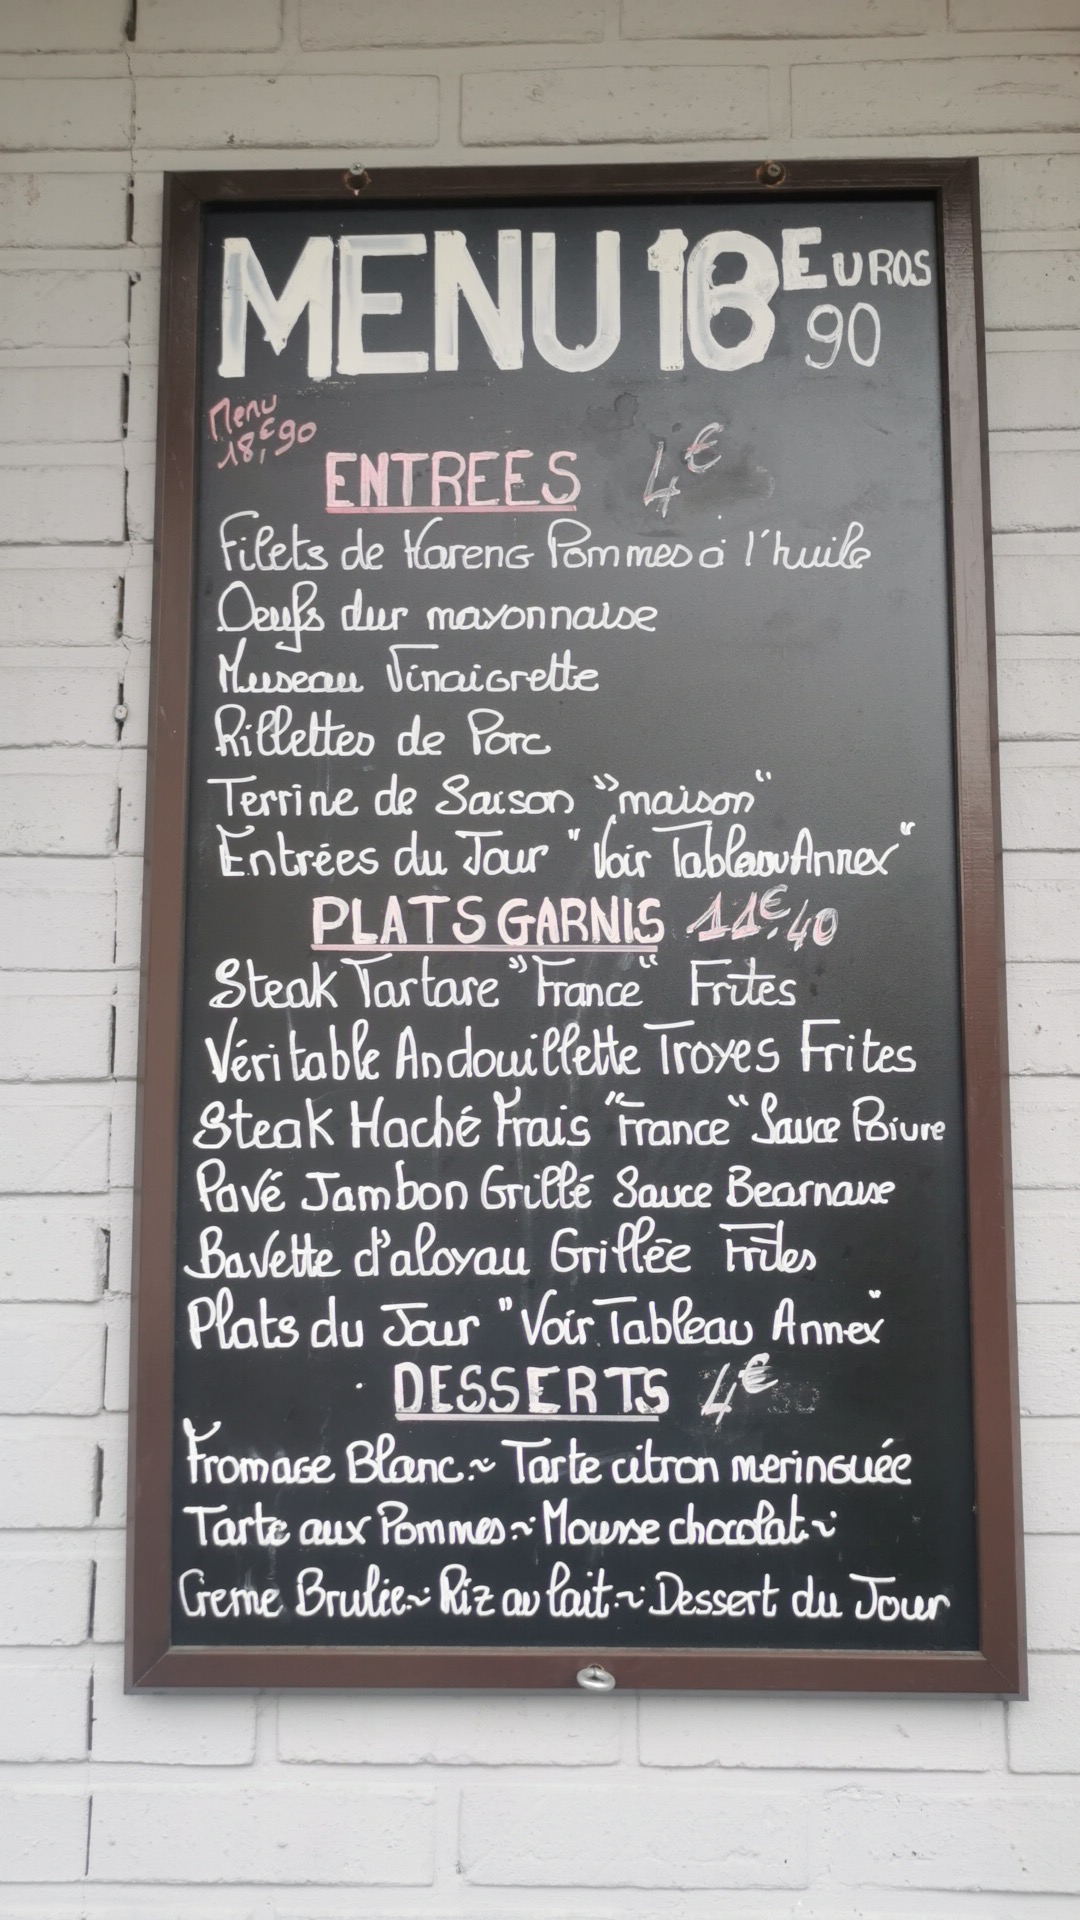 MENU 18 EUROS
90
Menu
18,€90
ENTREES 4€
Filets de Hareng Pommes à l'huile
Oeufs dur mayonnaise
Museau Vinaigrette
Rillettes de Porc
Terrine de Saison "maison"
Entrées du Jour "Voir Tableau Annex"
PLATS GARNIS 11€,40
Steak Tartare "France" Frites
Véritable Andouillette Troyes Frites
Steak Haché Frais "France" Sauce Poivre
Pavé Jambon Grillé Sauce Bearnaise
Bavette d'aloyau Grillée Frites
Plats du Jour "Voir Tableau Annex"
DESSERTS 4€
Fromage Blanc.~ Tarte citron meringuée
Tarte aux Pommes.~ Mousse chocolat.~
Creme Brulée.~ Riz au lait.~ Dessert du Jour